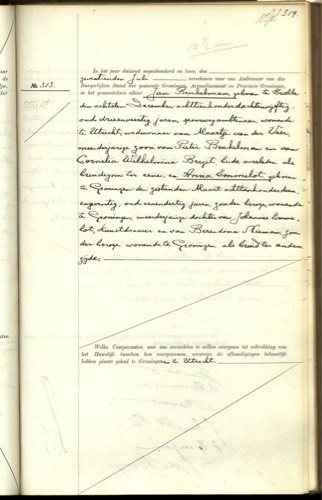 319.
10 1/2 uur
No. 313.
In het jaar duizend negenhonderd en twee, den
zeventienden Juli verschenen voor ons Ambtenaar van den
Burgerlijken Stand der gemeente Groningen, Arrondissement en Provincie Groningen,
in het gemeentehuis aldaar Jan Beukelman, geboren te Brielle
den achtsten December achttienhonderdachtenvijftig,
oud drieenveertig jaren, wonende
te Utrecht, weduwnaar van Maartje van der Veer,
meerderjarige zoon van Pieter Beukelman en van
Cornelia Wilhelmina Breget, beide overleden als
bruidegom ter eene, en Anna Emmelot, geboren
te Groningen den zestienden Maart achttienhonderd
en oud jaren, zonder beroep wonende
te Groningen, meerderjarige dochter van Johannes Emme-
lot, en van Berendina Nieman, zon
der beroep, wonende te Groningen als bruid ter andere
zijde,
Welke Comparanten aan ons verzochten te willen overgaan tot voltrekking van
het Huwelijk tusschen hen voorgenomen, waarvan de afkondigingen behoorlijk
hebben plaats gehad te Groningen en te Utrecht.